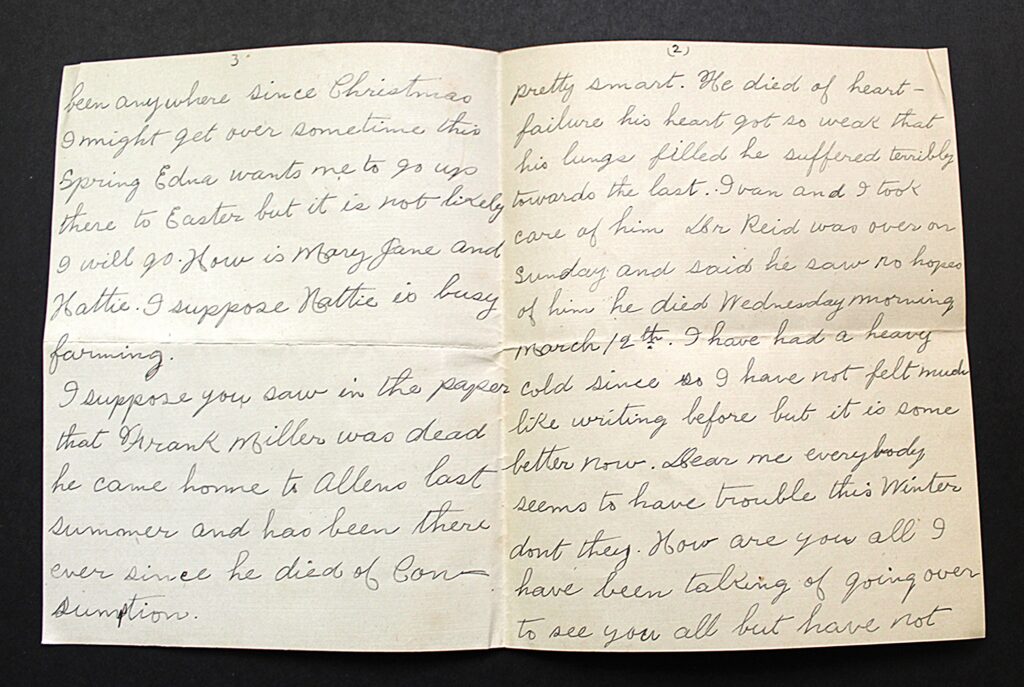 (2)
pretty smart. He died of heart-
failure his heart got so weak that
his lungs filled he suffered terribly
towards the last. Ivan and I took
care of him Dr Reid was over on
Sunday and said he saw no hopes
of him he died Wednesday morning
March 12th. I have had a heavy
cold since so I have not felt much
like writing before but it is some
better now. Dear me everybody
seems to have trouble this Winter
dont they. How are you all I
have been talking of going over
to see you all but have not
3
been anywhere since Christmas
I might get over sometime this
Spring Edna wants me to go up
there to Easter but it is not likely
I will go. How is Mary Jane and
Hattie. I suppose Hattie is busy
farming.
I suppose you saw in the paper
that Frank Miller was dead
he came home to Allens last
summer and has been there
ever since he died of Con-
sumption.